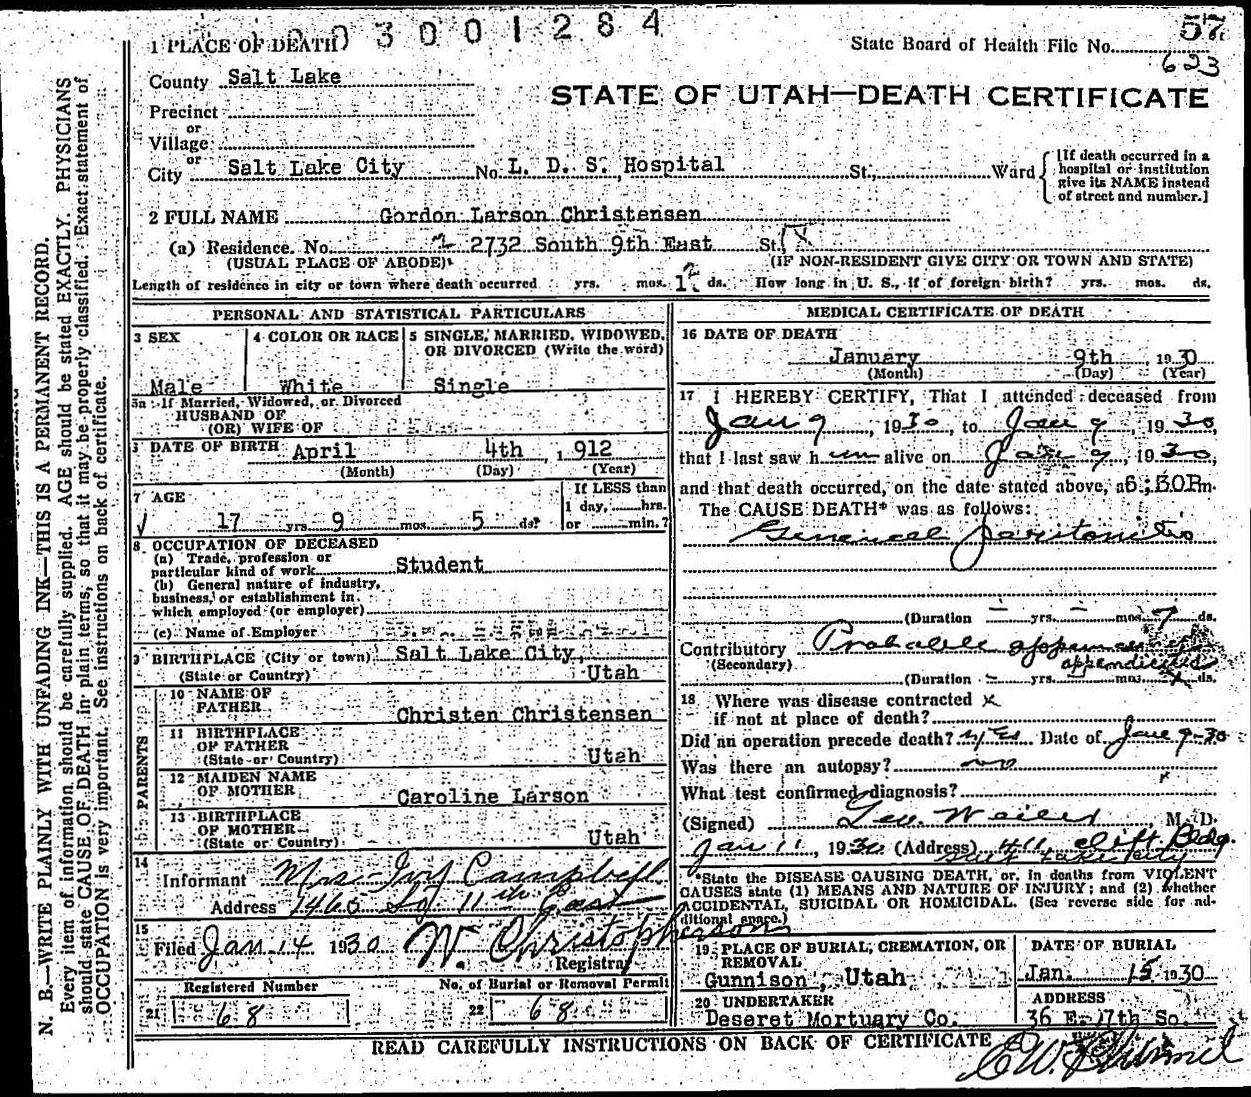 3001284
57
1 PLACE OF DEATH
State Board of Health File No.
623
County Salt Lake
STATE OF UTAH—DEATH CERTIFICATE
Precinct
or
Village
or
City Salt Lake City No. L. D. S. Hospital St., Ward
[If death occurred in a
hospital or institution
give its NAME instead
of street and number.]
2 FULL NAME Gordon Larson Christensen
(a) Residence. No. 2732 South 9th East St.
(USUAL PLACE OF ABODE) (IF NON-RESIDENT GIVE CITY OR TOWN AND STATE)
Length of residence in city or town where death occurred yrs. mos. ds. How long in U. S., if of foreign birth? yrs. mos. ds.
PERSONAL AND STATISTICAL PARTICULARS
3 SEX
Male
4 COLOR OR RACE
White
5 SINGLE, MARRIED, WIDOWED,
OR DIVORCED (Write the word)
Single
5a If Married, Widowed, or Divorced
HUSBAND OF
(OR) WIFE OF
6 DATE OF BIRTH April 4th, 1912
(Month) (Day) (Year)
7 AGE
17 yrs. 9 mos. 5 ds.
If LESS than
1 day, hrs.
or min.?
8 OCCUPATION OF DECEASED
(a) Trade, profession or
particular kind of work Student
(b) General nature of industry,
business, or establishment in
which employed (or employer)
(c) Name of Employer
9 BIRTHPLACE (City or town) Salt Lake City,
(State or Country) Utah
PARENTS
10 NAME OF
FATHER Christen Christensen
11 BIRTHPLACE
OF FATHER
(State or Country) Utah
12 MAIDEN NAME
OF MOTHER Caroline Larson
13 BIRTHPLACE
OF MOTHER
(State or Country) Utah
14
Informant Mrs. Ivy Campbell
Address 1466 So. 11th East
15
Filed Jan 14 1930 W. Christopherson
Registrar
Registered Number
21 68
No. of Burial or Removal Permit
22 68
MEDICAL CERTIFICATE OF DEATH
16 DATE OF DEATH
January 9th 1930
(Month) (Day) (Year)
17 I HEREBY CERTIFY, That I attended deceased from
Jan 9, 1930, to Jan 9, 1930,
that I last saw him alive on Jan 9, 1930,
and that death occurred, on the date stated above, at 6:50P m.
The CAUSE DEATH* was as follows:
General Peritonitis
(Duration yrs. mos. 7 ds.
Contributory Probable
(Secondary) appendicitis
(Duration yrs. mos. ds.
18 Where was disease contracted x
if not at place of death?
Did an operation precede death? yes Date of Jan 9-30
Was there an autopsy? no
What test confirmed diagnosis?
(Signed) Geo. M. D.
Jan 11, 1930 (Address) 411 Clift Bldg.
Salt Lake City
*State the DISEASE CAUSING DEATH, or, in deaths from VIOLENT
CAUSES state (1) MEANS AND NATURE OF INJURY; and (2) whether
ACCIDENTAL, SUICIDAL OR HOMICIDAL. (See reverse side for ad-
ditional space.)
19 PLACE OF BURIAL, CREMATION, OR
REMOVAL
Gunnison, Utah
DATE OF BURIAL
Jan. 15 1930
20 UNDERTAKER
Deseret Mortuary Co.
ADDRESS
36 E. 7th So.
READ CAREFULLY INSTRUCTIONS ON BACK OF CERTIFICATE
N. B.—WRITE PLAINLY WITH UNFADING INK—THIS IS A PERMANENT RECORD.
Every item of information should be carefully supplied. AGE should be stated EXACTLY. PHYSICIANS
should state CAUSE OF DEATH in plain terms, so that it may be properly classified. Exact statement of
OCCUPATION is very important. See instructions on back of certificate.